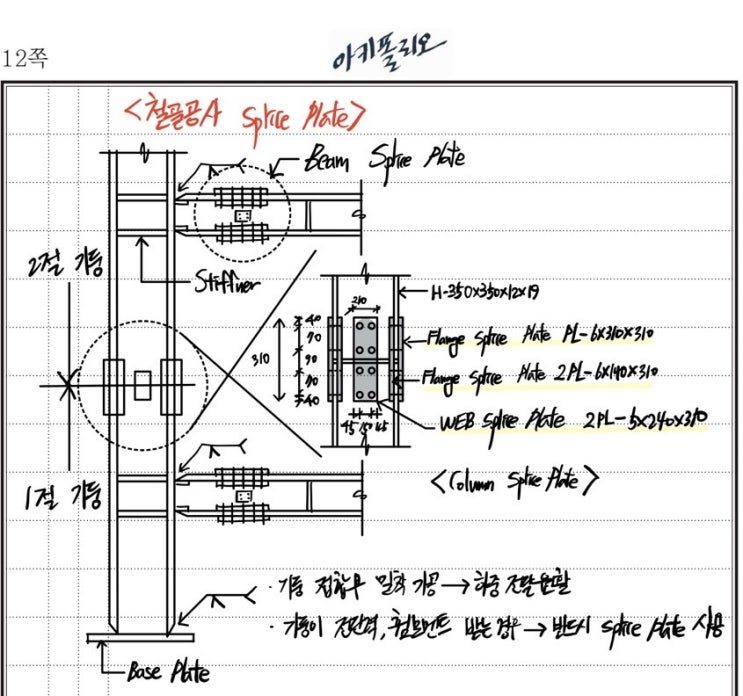 12쪽
아키폴리오
<철골공사 Splice Plate>
Beam Splice Plate
2절 기둥
Stiffner
H-350x350x12x19
210
40
70
90
70
40
310
Flange Splice Plate PL-6x310x310
Flange Splice Plate 2PL-6x140x310
WEB Splice Plate 2PL-5x240x310
45 150 45
<Column Splice Plate>
1절 기둥
· 기둥 접합부 밀착 가공 → 하중 전달 원활
· 기둥이 전단력, 휨모멘트 받는 경우 → 반드시 splice plate 사용
Base Plate